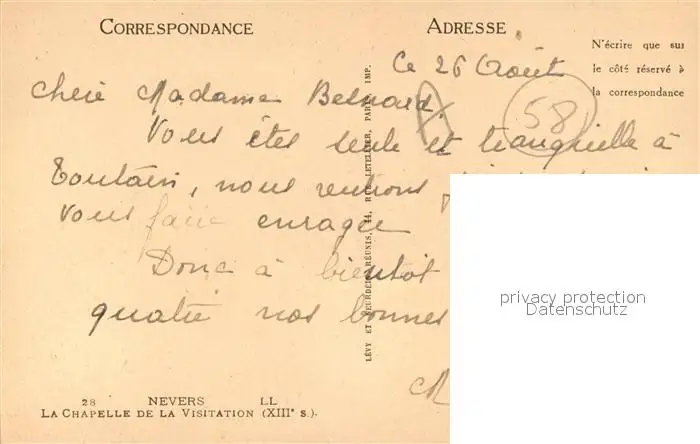 CORRESPONDANCE
ADRESSE
N'écrire que sur
le côté réservé à
la correspondance
Ce 26 Août
58
Chère Madame Besnard,
Vous êtes seule et tranquille à
Toutain, nous rentrons
vous faire enrager
Donc à bientôt
quatre nos bonnes
LÉVY ET NEURDEIN RÉUNIS, 44, RUE LETELLIER, PARIS, IMP.
privacy protection
Datenschutz
28 NEVERS LL
LA CHAPELLE DE LA VISITATION (XIIIe s.).